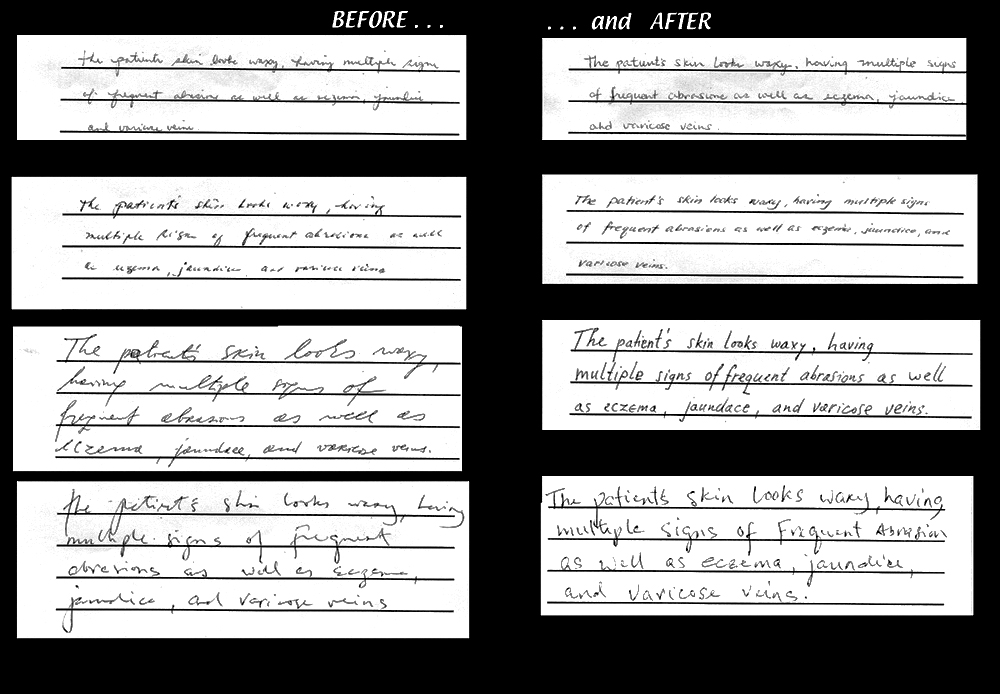 BEFORE . . .
. . . and AFTER
the patient's skin looks waxy, having multiple signs
of frequent abrasions as well as eczema, jaundice,
and varicose veins
The patient's skin looks waxy, having multiple signs
of frequent abrasions as well as eczema, jaundice,
and varicose veins.
the patient's skin looks waxy, having
multiple signs of frequent abrasions as well
as eczema, jaundice, and varicose veins
The patient's skin looks waxy, having multiple signs
of frequent abrasions as well as eczema, jaundice, and
varicose veins.
The patient's skin looks waxy,
having multiple signs of
frequent abrasions as well as
eczema, jaundace, and varicose veins.
The patient's skin looks waxy, having
multiple signs of frequent abrasions as well
as eczema, jaundace, and varicose veins.
the patient's skin looks waxy, having
multiple signs of frequent
abrasions as well as eczema,
jaundice, and varicose veins
The patient's skin looks waxy, having
multiple signs of Frequent Abrasion
as well as eczema, jaundice,
and varicose veins.